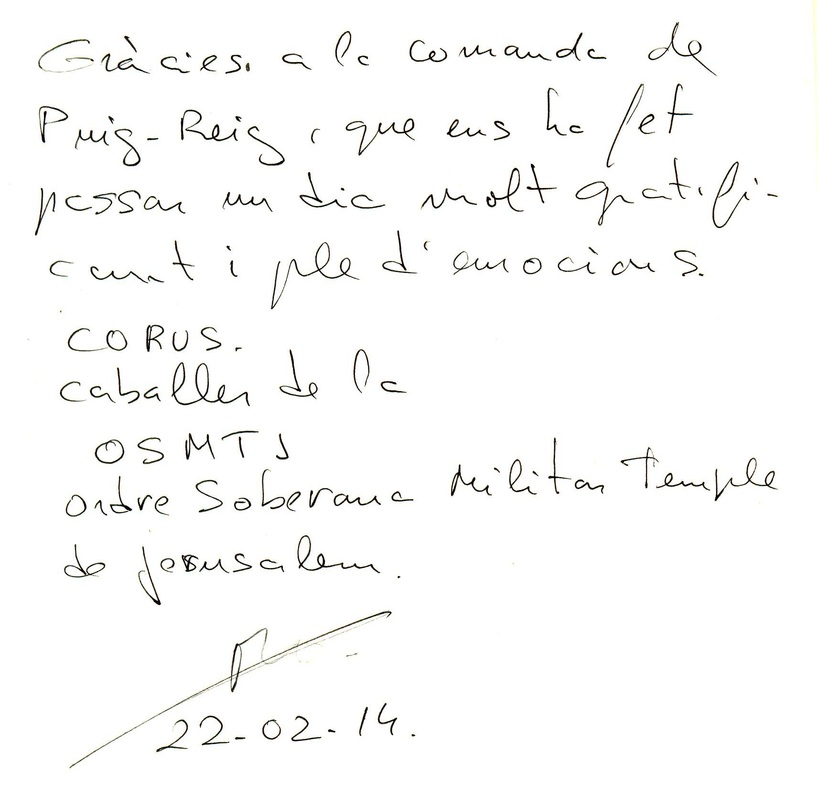 Gràcies. a la comanda de
Puig-Reig, que ens ha fet
passar un dia molt gratifi-
cant i ple d'emocions.
CORUS.
caballer de la
OSMTJ
ordre Soberana Militar Temple
de jerusalem.
22-02-14.